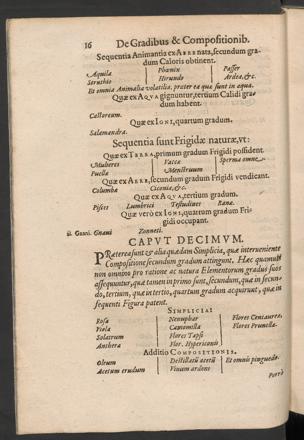 16 De Gradibus & Compositionib.
Sequentia Animantia ex AERE nata, secundum gra-
dum Caloris obtinent.
Aquila Phœnix Passer
Struthio Hirundo Ardea, &c.
Et omnia Animalia volatilia, præter ea quæ sunt in aqua.
Quæ ex AQVA gignuntur, tertium Calidi gra-
dum habent.
Castoreum.
Quæ ex IGNI, quartum gradum.
Salamandra.
Sequentia sunt Frigidæ naturæ, vt:
Quæ ex TERRA, primum gradum Frigidi possident.
Mulieres Vaccæ Sperma omne
Puellæ Menstruum
Quæ ex AERE, secundum gradum Frigidi vendicant.
Columba Ciconia, &c.
Quæ ex AQVA, tertium gradum.
Pisces Lumbrici Testudines Ranæ.
Quæ verò ex IGNIS, quartum gradum Fri-
gidi occupant.
ii. Gnavi Zonneti.
CAPVT DECIMVM.
PRæterea sunt & alia quædam Simplicia, quæ interueniente
Compositione secundum gradum attingunt. Hæc quamuis
non omnino pro ratione ac natura Elementorum gradus suos
assequuntur, quæ tamen in primo sunt, secundum, quæ in secun-
do, tertium, quæ in tertio, quartum gradum acquirunt, quæ in
sequenti Figura patent.
SIMPLICIA:
Rosa Nenuphar Flores Centaureæ
Viola Camomilla Flores Prunellæ.
Solatrum Flores Tapsi
Anthera Flor. Hypericonis
Additio COMPOSITIONIS.
Oleum Destillatū acetū Et omnis pinguedo
Acetum crudum Vinum ardens